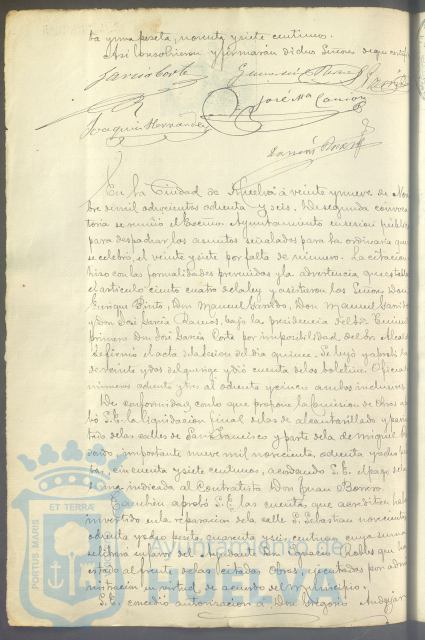 ta y una peseta, noventa y siete centimos.
Así consolvieron y firmarán dichos Señores de que certifico
García Corte
José Mª Cancion
Joaquin Hernandez
En la Ciudad de Huelva á veinte y nueve de No
bre de mil ochocientos ochenta y seis. De segunda convoca
toria se reunió el Excmo. Ayuntamiento en sesion publica
para despachar los asuntos señalados para la ordinaria que
se celebró, el veinte y siete por falta de número. La citacion
hizo con las formalidades prevenidas y la advertencia que estable
el artículo ciento cuatro de la ley y asistieron los Señores Don
Enrique Pinto, Don Manuel Garrido, Don Manuel
y Don José García Ramos, bajo la presidencia del Sr. Teniente
primero Don José García Corte por imposibilidad, del Sr. Alcal
Se firmó el acta de la sesion del dia quince. Se leyó y aprobó la
de veinte y dos del que rige y dió cuenta de los boletines Oficial
números ochenta y tres al ochenta y cinco ambos inclusives
De conformidad con lo que propone la Comision de Obras a
bó S.E. la liquidacion final de las de alcantarillado y
tado de las calles de San Francisco y parte de la de Miguel
importante nueve mil novecientas, ochenta y ocho
tas, cincuenta y siete centimos, acordando S.E. el pago de la
suma indicada al Contratista Don Juan Borrero.
Tambien aprobó S.E. las cuentas, que acreditan
invertido en la reparacion de la calle S. Sebastian novecientas
ochenta y ocho pesetas, cuarenta y seis centimos cuya suma
se librará á favor del Ayudante Don Ignacio Robles que ha
estado al frente de las citadas Obras ejecutadas por admi
nistracion en virtud, de acuerdo del Municipio.
S.E. concedió autorizacion á Don Gregorio Andujar
PORTUS MARIS ET TERRAE
Ayuntamiento de
HUELVA